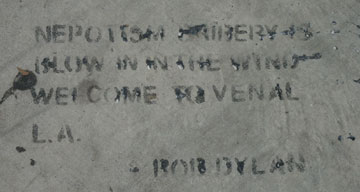 NEPOTISM BRIBERY IS
BLOW IN IN THE WIND
WELCOME TO VENAL
L.A.
BOB DYLAN